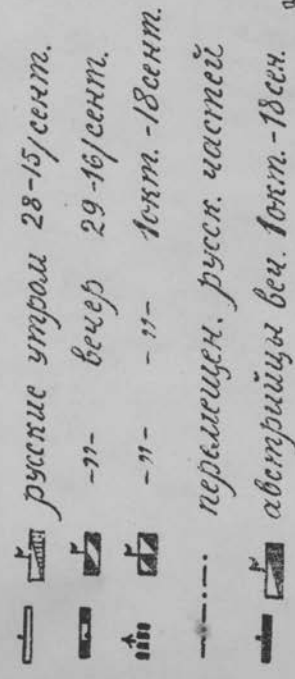 русские утром 28-15/сент.
-„- вечер 29-16/сент.
-„- -„- 1окт.-18сент.
перемещен. русск. частей
австрийцы веч. 1окт.-18сен.